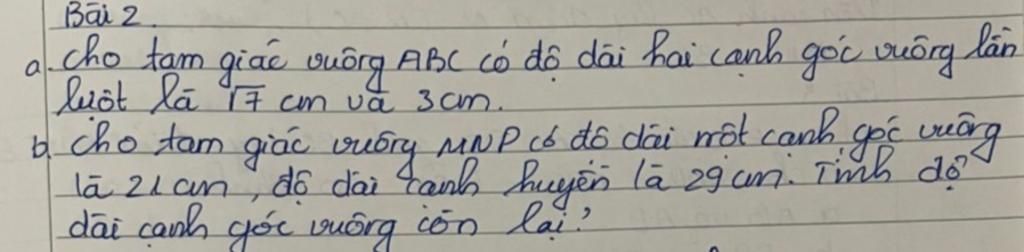 Bài 2.
a. Cho tam giác vuông ABC có độ dài hai cạnh góc vuông lần
lượt là √7 cm và 3cm.
b, Cho tam giác vuông MNP có độ dài một cạnh góc vuông
là 21 cm, độ dài cạnh huyền là 29 cm. Tính độ
dài cạnh góc vuông còn lại?